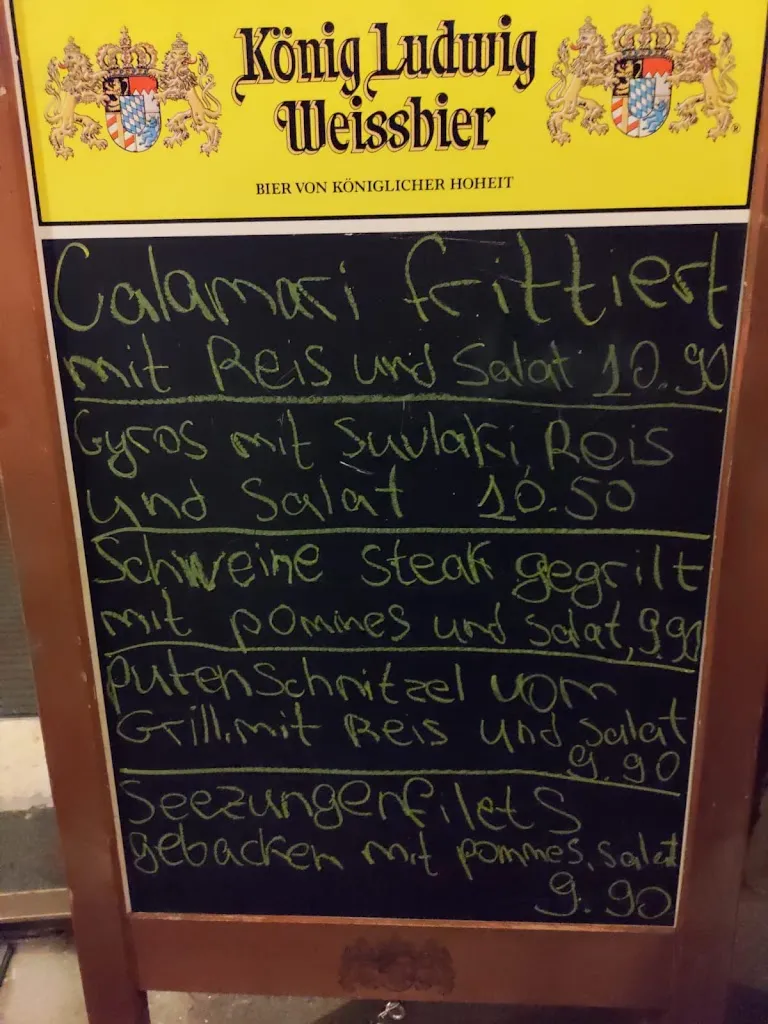 König Ludwig
Weissbier
BIER VON KÖNIGLICHER HOHEIT
Calamari frittiert
mit Reis und Salat 10.90
Gyros mit Suvlaki, Reis
und Salat 10.50
Schweine steak gegrilt
mit pommes und salat, 9.90
putenschnitzel vom
Grill, mit Reis und salat
9.90
Seezungenfilets
gebacken mit pommes, salat
9.90